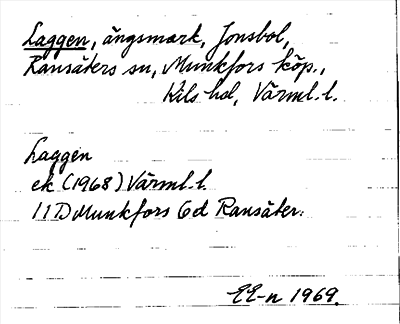 Laggen, ängsmark, Jonsbol,
Ransäters sn, Munkfors köp.,
Kils hd, Värml. l.
Laggen
ek (1968) Värml. l.
11D Munkfors 6d Ransäter.
EE-n 1969.